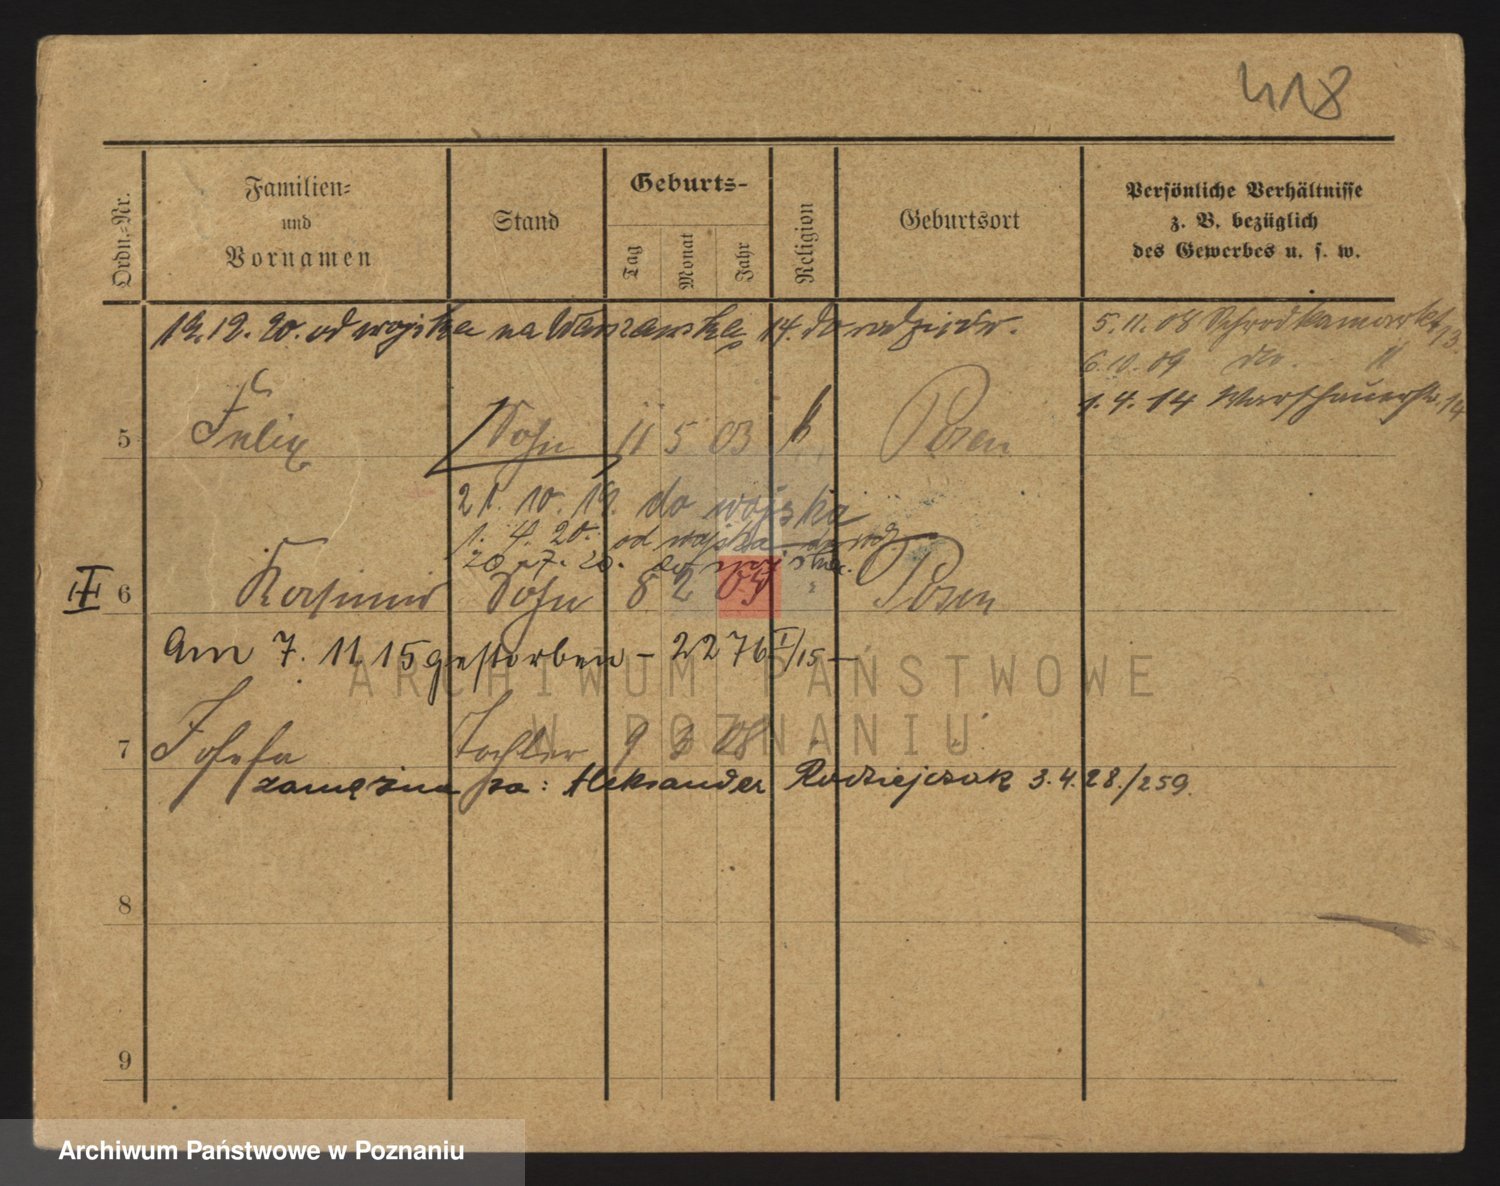 418
Ordn.-Nr.
Familien-
und
Vornamen
Stand
Geburts-
Tag
Monat
Jahr
Religion
Geburtsort
Persönliche Verhältnisse
z. B. bezüglich
des Gewerbes u. s. w.
12.12.20. od wojska na Warszawska 14. do rodziców.
5.11.08 Schrodkamarkt 13.
6.10.09 do. "
1.4.14 Warschauerstr. 14
5 Felix Sohn 11 5 03 k Posen
21. 10. 19. do wojska
1. 4. 20. od wojska
20. 7. 20. do wojska.
6 Kasimir Sohn 8 2 05 " Posen
Am 7. 11. 15 gestorben - 2276 I/15 -
7 Josefa Tochter 9 3 08
zamężna za: Aleksander Radziejczak 3.4.28./259.
8
9
ARCHIWUM PAŃSTWOWE
W POZNANIU
Archiwum Państwowe w Poznaniu